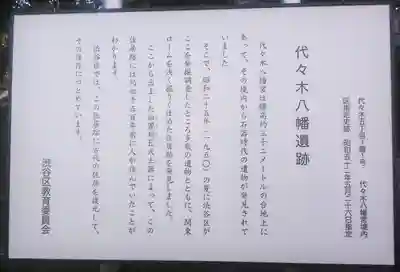 代々木八幡遺跡
代々木五丁目一番一号　代々木八幡宮境内
区指定史跡　昭和五十二年五月二十六日指定
代々木八幡宮は標高約三十二メートルの台地上に
あって、その境内から石器時代の遺物が発見されて
いました
そこで、昭和二十五年（一九五〇）の夏に渋谷区が
ここを発掘調査したところ多数の遺物とともに、関東
ロームを浅く掘りくぼめた住居跡を発見しました。
ここから出ました加曽利E式土器によって、この
住居跡には約四千五百年前に人が住んでいたことが
わかります。
渋谷区では、この住居跡に古代の住居を復元して、
その保存につとめています。
渋谷区教育委員会